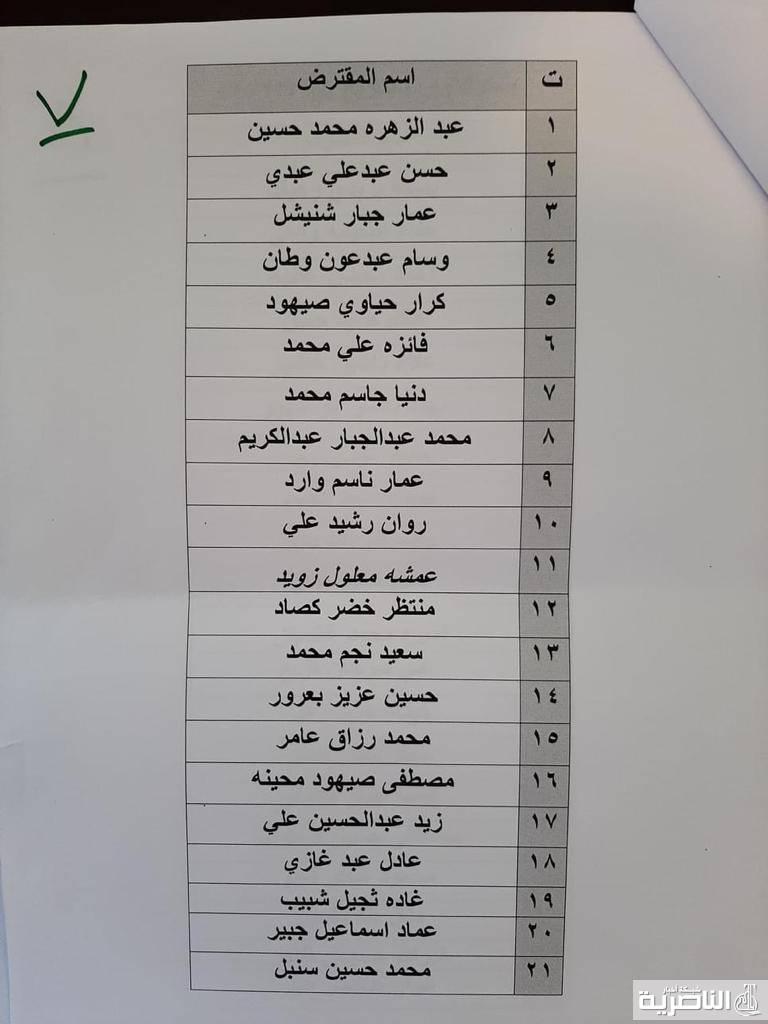 ٧
ت اسم المقترض
١ عبد الزهره محمد حسين
٢ حسن عبدعلي عبدي
٣ عمار جبار شنيشل
٤ وسام عبدعون وطان
٥ كرار حياوي صيهود
٦ فائزه علي محمد
٧ دنيا جاسم محمد
٨ محمد عبدالجبار عبدالكريم
٩ عمار ناسم وارد
١٠ روان رشيد علي
١١ عمشه معلول زويد
١٢ منتظر خضر كصاد
١٣ سعيد نجم محمد
١٤ حسين عزيز بعرور
١٥ محمد رزاق عامر
١٦ مصطفى صيهود محينه
١٧ زيد عبدالحسين علي
١٨ عادل عبد غازي
١٩ غاده ثجيل شبيب
٢٠ عماد اسماعيل جبير
٢١ محمد حسين سنبل
شبكة أخبار
الناصرية